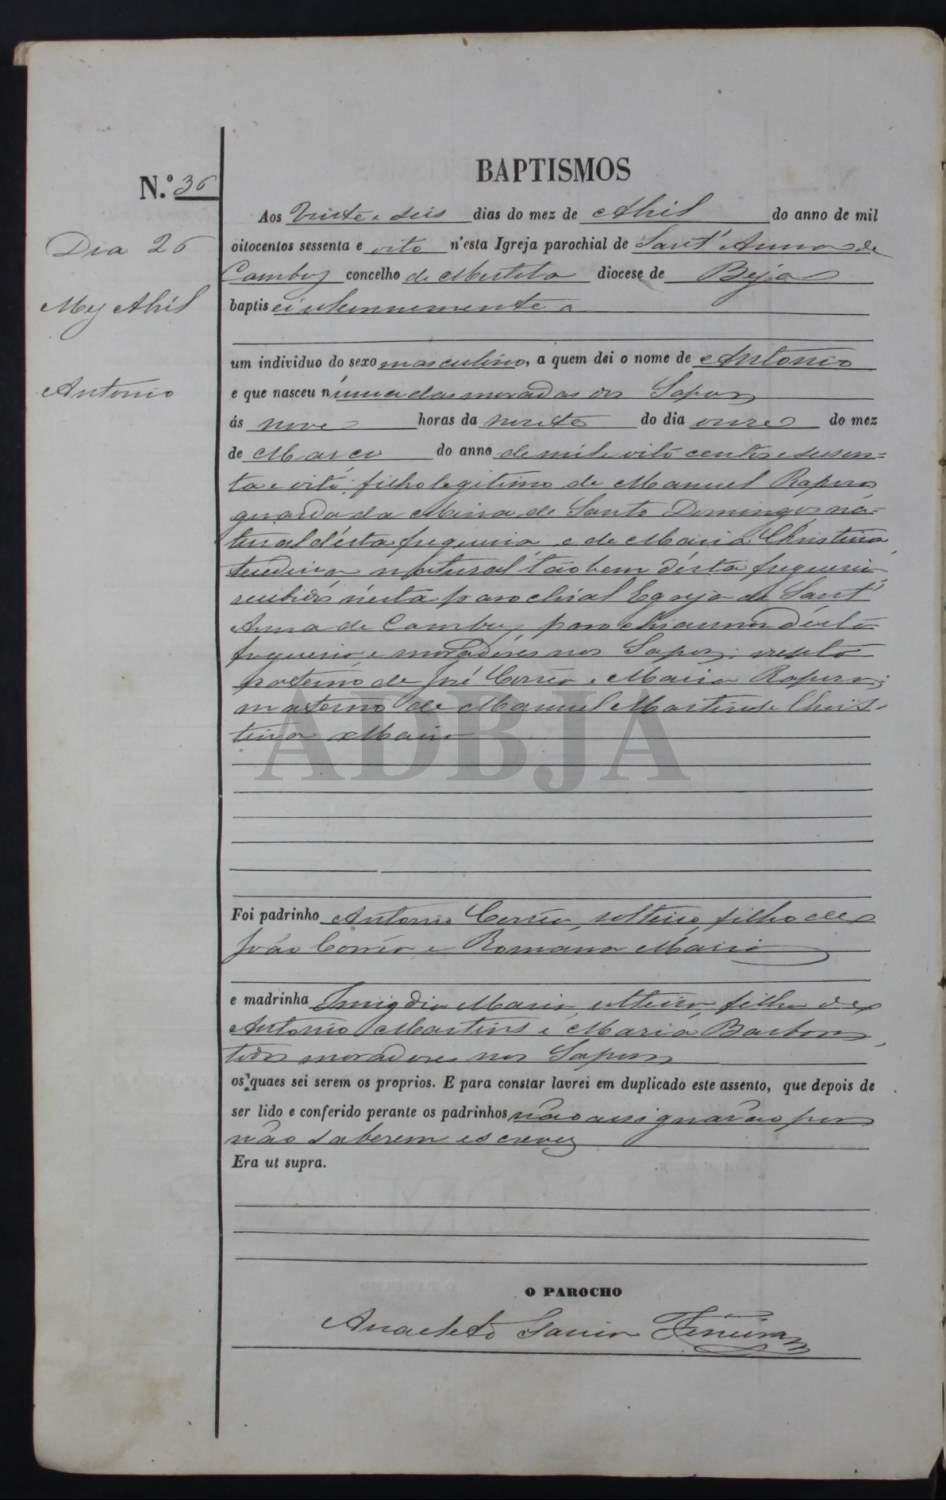 BAPTISMOS
N.º 36
Dia 26
Mez Abril
Antonio
Aos Vinte e seis dias do mez de Abril do anno de mil
oitocentos sessenta e oito n'esta Igreja parochial de Sant' Anna de
Cambas concelho de Mertola diocese de Beja
baptisei solemnemente a
um individuo do sexo masculino, a quem dei o nome de Antonio
e que nasceu n'uma das moradas dos Sapos
ás nove horas da noite do dia onze do mez
de Março do anno de mil e oito centos e sessen=
ta e oito: filho legitimo de Manuel Raposo
guarda da Mina de Santo Domingos na-
tural d'esta freguesia e de Maria Christina
natural tãobem d'esta freguesia
recebidos n'esta parochial Egreja de Sant'
Anna de Cambas, parochianos d'esta
freguesia e moradores nos Sapos: neto
paterno de José Corrêa e Maria Raposa;
materno de Manuel Martins e Chris-
tina Maria
ADBJA
Foi padrinho Antonio Corrêa, solteiro filho de
João Corrêa e Romana Maria
e madrinha Emigdia Maria, solteira filha de
Antonio Martins e Maria Barbora
todos moradores nos Sapos
os quaes sei serem os proprios. E para constar lavrei em duplicado este assento, que depois de
ser lido e conferido perante os padrinhos não assignarão por
não saberem escrever
Era ut supra.
O PAROCHO
Anacleto Ferreira